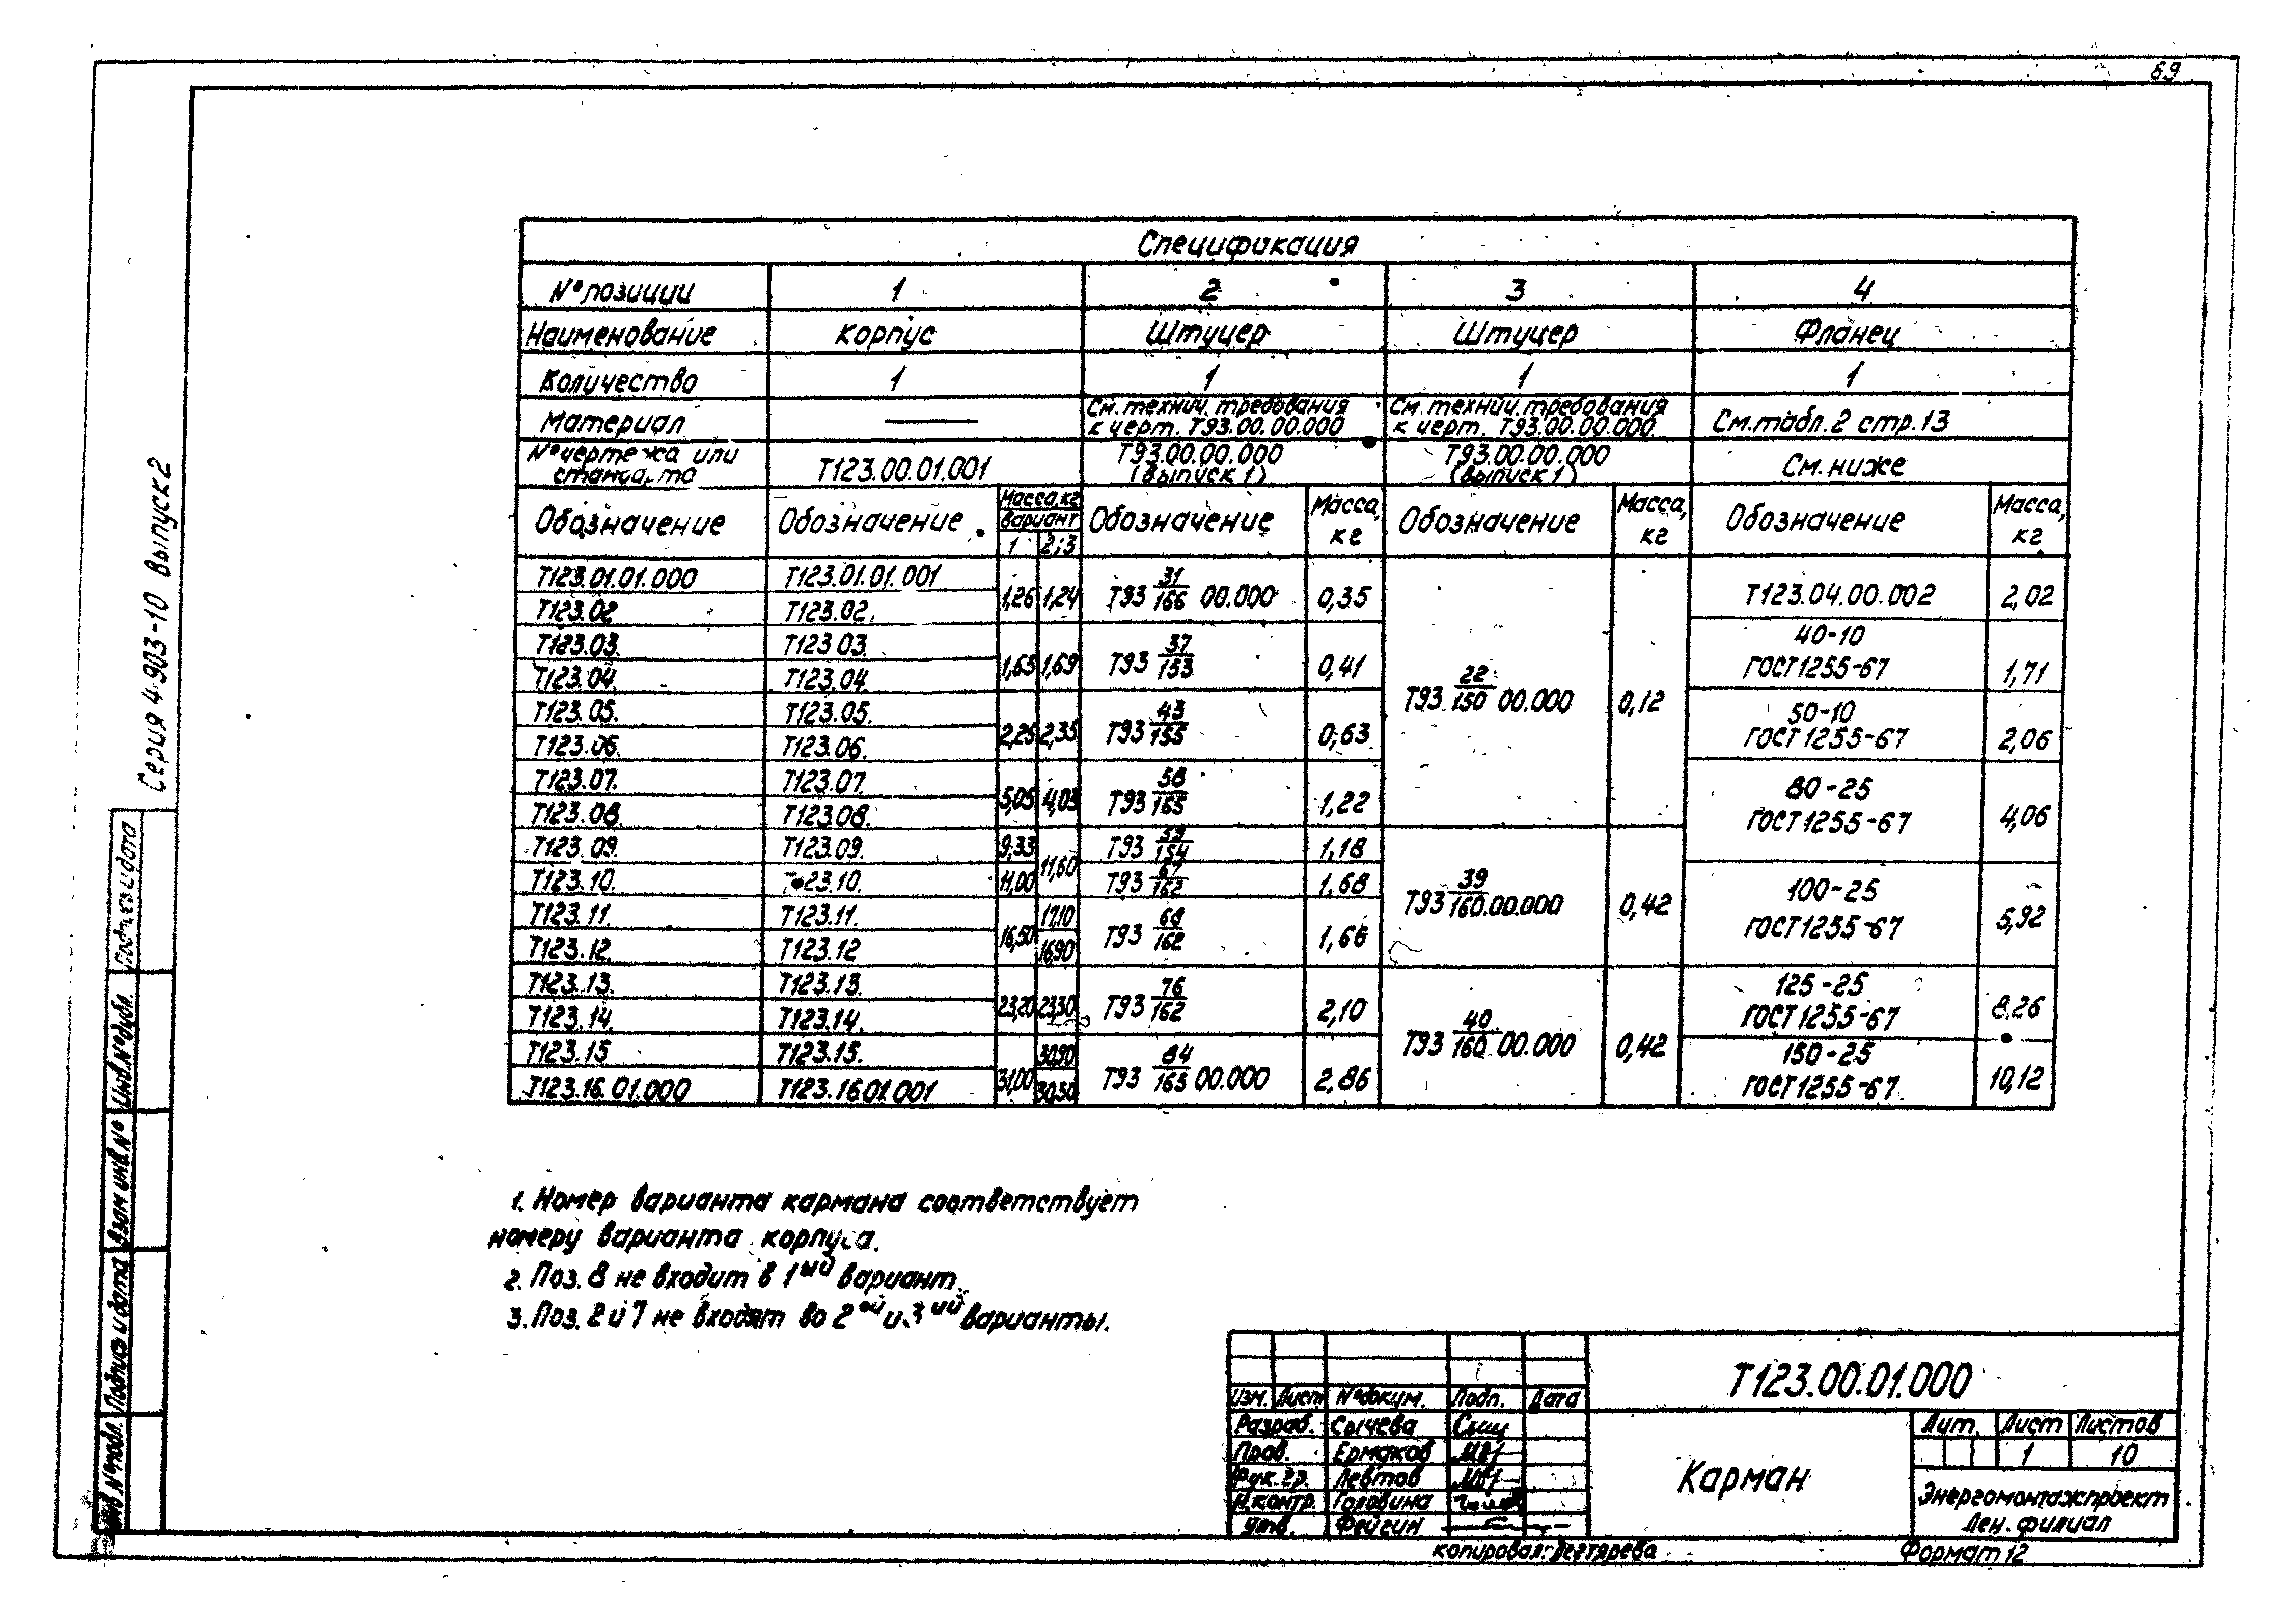 69
Серия 4.903-10 Выпуск 2
Спецификация
№ позиции 1 2 3 4
Наименование Корпус Штуцер Штуцер Фланец
Количество 1 1 1 1
Материал — См. технич. требования к черт. Т93.00.00.000 См. технич. требования к черт. Т93.00.00.000 См. табл. 2 стр. 13
№ чертежа или стандарта Т123.00.01.001 Т93.00.00.000 (выпуск 1) Т93.00.00.000 (выпуск 1) См. ниже
Обозначение Обозначение Масса, кг вариант 1 2;3 Обозначение Масса, кг Обозначение Масса, кг Обозначение Масса, кг
Т123.01.01.000 Т123.01.01.001 1,26 1,24 Т93 31/166 00.000 0,35 Т93 22/150 00.000 0,12 Т123.04.00.002 2,02
Т123.02 Т123.02.
Т123.03. Т123.03. 1,65 1,69 Т93 37/153 0,41 40-10 ГОСТ 1255-67 1,71
Т123.04. Т123.04.
Т123.05. Т123.05. 2,25 2,35 Т93 43/155 0,63 50-10 ГОСТ 1255-67 2,06
Т123.06. Т123.06.
Т123.07. Т123.07. 5,05 4,03 Т93 58/165 1,22 80-25 ГОСТ 1255-67 4,06
Т123.08. Т123.08.
Т123.09. Т123.09. 9,33 11,60 Т93 1,18 Т93 39/160.00.000 0,42
Т123.10. 23.10. 11,00 Т93 67/162 1,68 100-25 ГОСТ 1255-67 5,92
Т123.11. Т123.11. 16,50 17,10 Т93 68/162 1,66
Т123.12. Т123.12 16,90
Т123.13. Т123.13. 23,20 23,30 Т93 76/162 2,10 Т93 40/160 00.000 0,42 125-25 ГОСТ 1255-67 8,26
Т123.14. Т123.14.
Т123.15 Т123.15. 31,00 30,90 Т93 84/165 00.000 2,86 150-25 ГОСТ 1255-67 10,12
Т123.16.01.000 Т123.16.01.001 30,50
1. Номер варианта кармана соответствует
номеру варианта корпуса.
2. Поз. 8 не входит в 1ый вариант.
3. Поз. 2 и 7 не входят во 2ой и 3ий варианты.
Подпись и дата
Инв. № дубл.
Взам инв. №
Подпись и дата
Инв. № подл.
Т123.00.01.000
Изм. Лист № докум. Подп. Дата
Разраб. Сычева
Пров. Ермаков
Рук. гр. Левтов
Н. контр. Головина
Утв. Фейгин
Карман
Лит. Лист Листов
1 10
Энергомонтажпроект
Лен. филиал
Копировал: Дегтярева
Формат 12